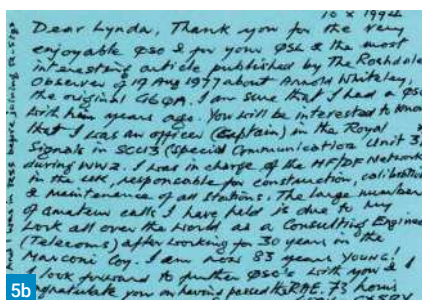 10 X 1994
Dear Lynda, Thank you for the very
enjoyable QSO & for your QSL & the most
interesting article published by The Rochdale
Observer of 19 Aug 1977 about Arnold Whiteley,
the original G6QA. I am sure that I had a QSO
with him years ago. You will be interested to know
that I was an officer (Captain) in the Royal
Signals in SCU3 (Special Communication Unit 3)
during WW2. I was in charge of the HF/DF Network
in the UK, responsible for construction, calibration
& maintenance of all stations. The large number
of amateur calls I have held is due to my
work all over the world as a Consulting Engineer
(Telecoms) after working for 30 years in the
Marconi Coy. I am now 83 years YOUNG!
I look forward to further QSO's with you & I
congratulate you on having passed the RAE. 73
I was in RSS before joining R. Sigs
5b